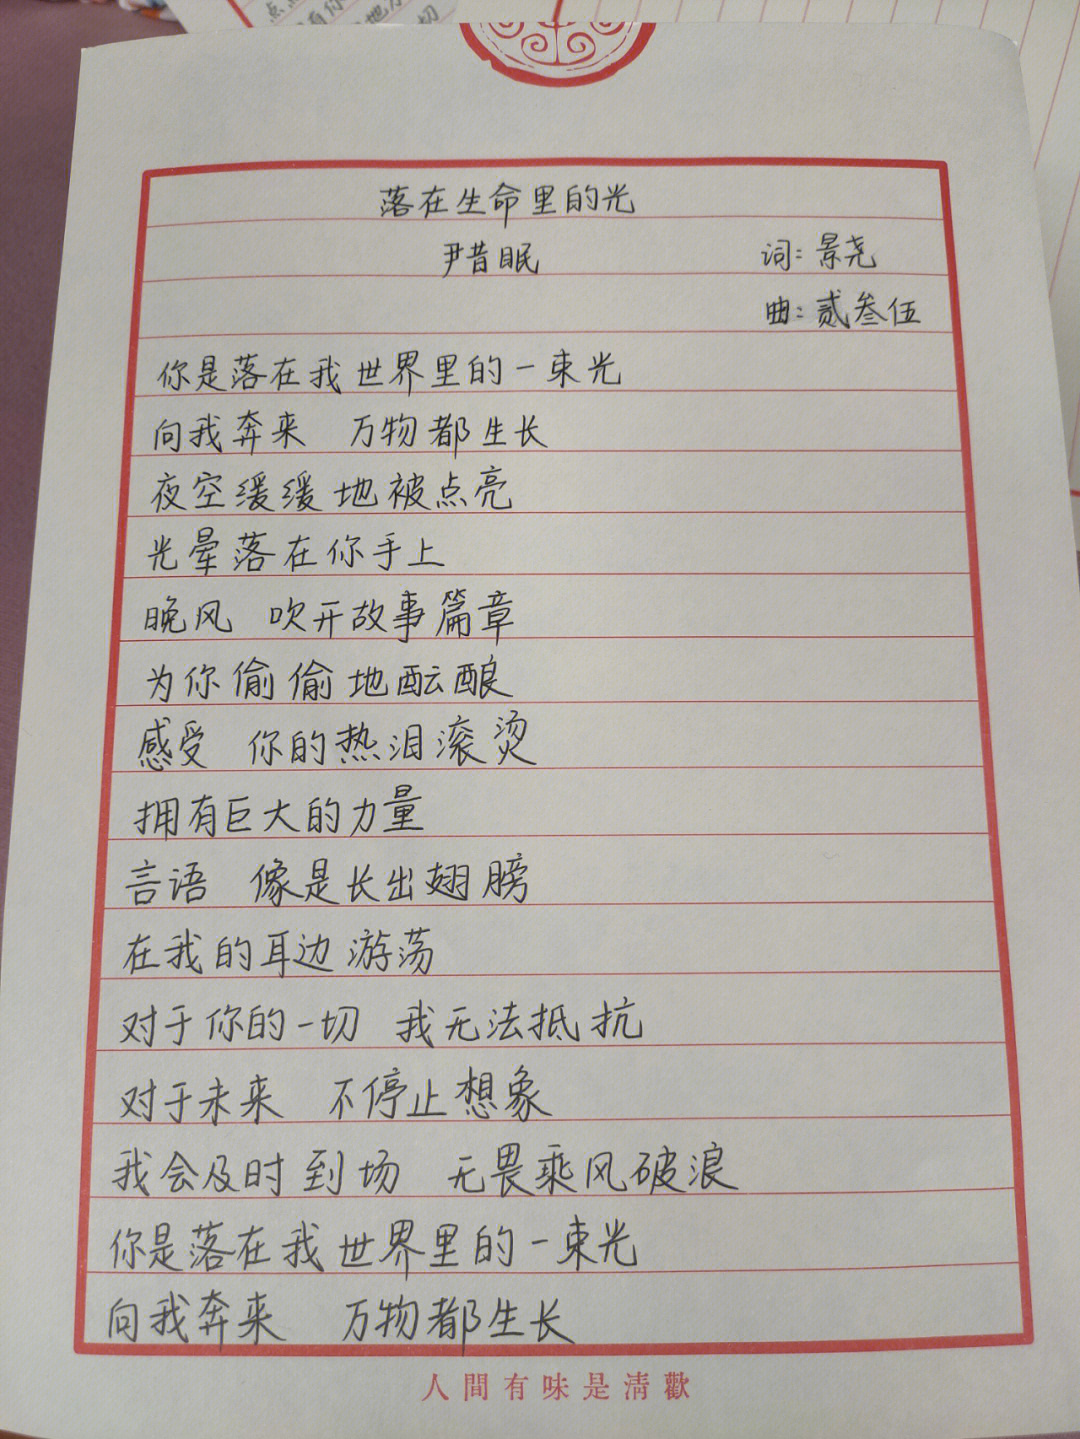 落在生命里的光
尹昔眠 词:景尧
曲:贰叁伍
你是落在我世界里的一束光
向我奔来 万物都生长
夜空缓缓地被点亮
光晕落在你手上
晚风 吹开故事篇章
为你偷偷地酝酿
感受 你的热泪滚烫
拥有巨大的力量
言语 像是长出翅膀
在我的耳边游荡
对于你的一切 我无法抵抗
对于未来 不停止想象
我会及时到场 无畏乘风破浪
你是落在我世界里的一束光
向我奔来 万物都生长
人間有味是清歡